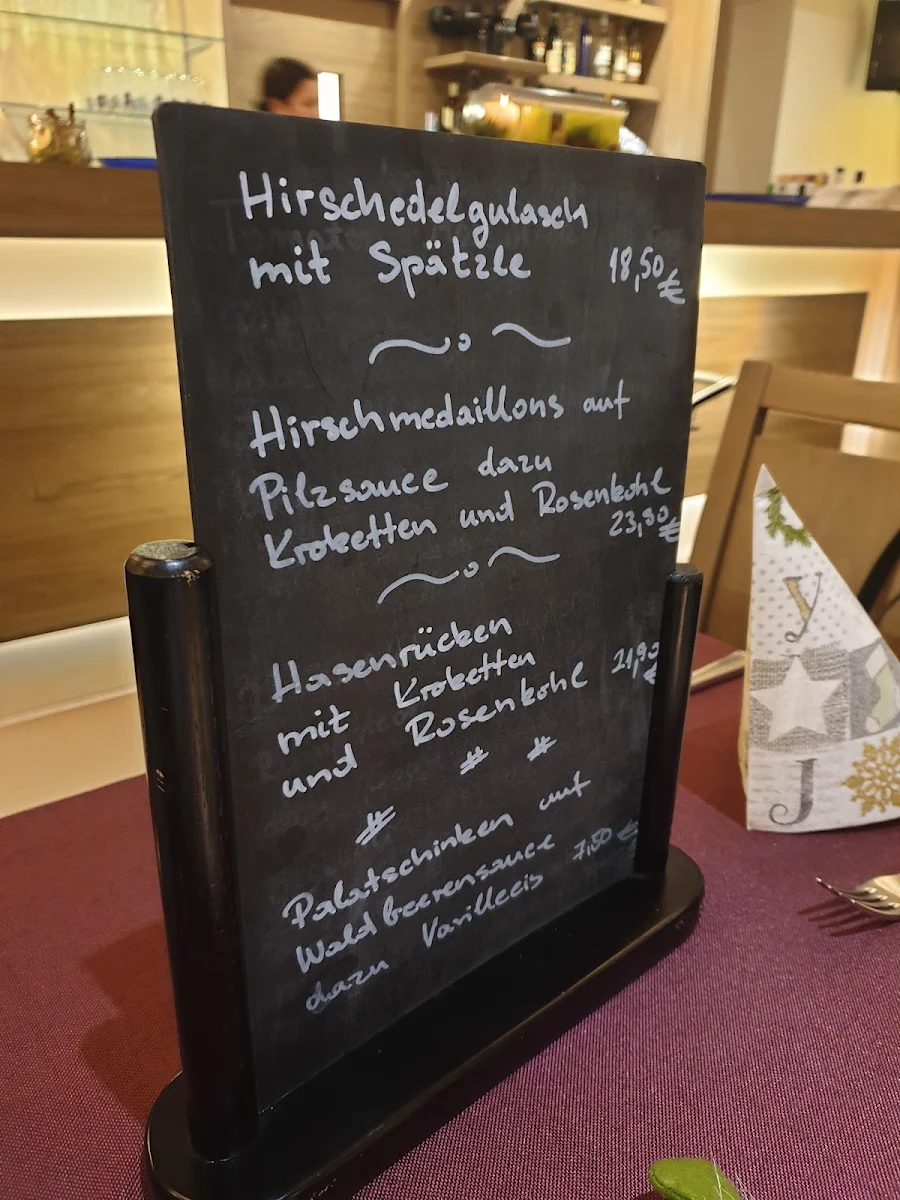 Hirschedelgulasch
mit Spätzle 18,50 €
Hirschmedaillons auf
Pilzsauce dazu
Kroketten und Rosenkohl
23,90 €
Hasenrücken
mit Kroketten 21,90 €
und Rosenkohl
# # #
Palatschinken auf
Waldbeerensauce 7,50 €
dazu Vanilleeis
y
J